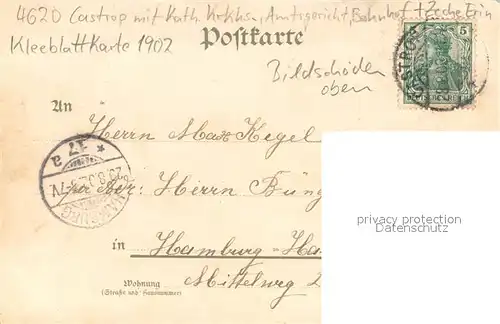 4620 Castrop mit Kath. Krkhs., Amtsgericht, Bahnhof + Zeche Erin
Kleeblattkarte 1902
Postkarte
Bildschäden
oben
5
An
Herrn Max Kegel
Herrn Büng
in Hamburg-
Mittelweg 2
Wohnung
(Straße und Hausnummer)
HAMBURG
privacy protection
Datenschutz